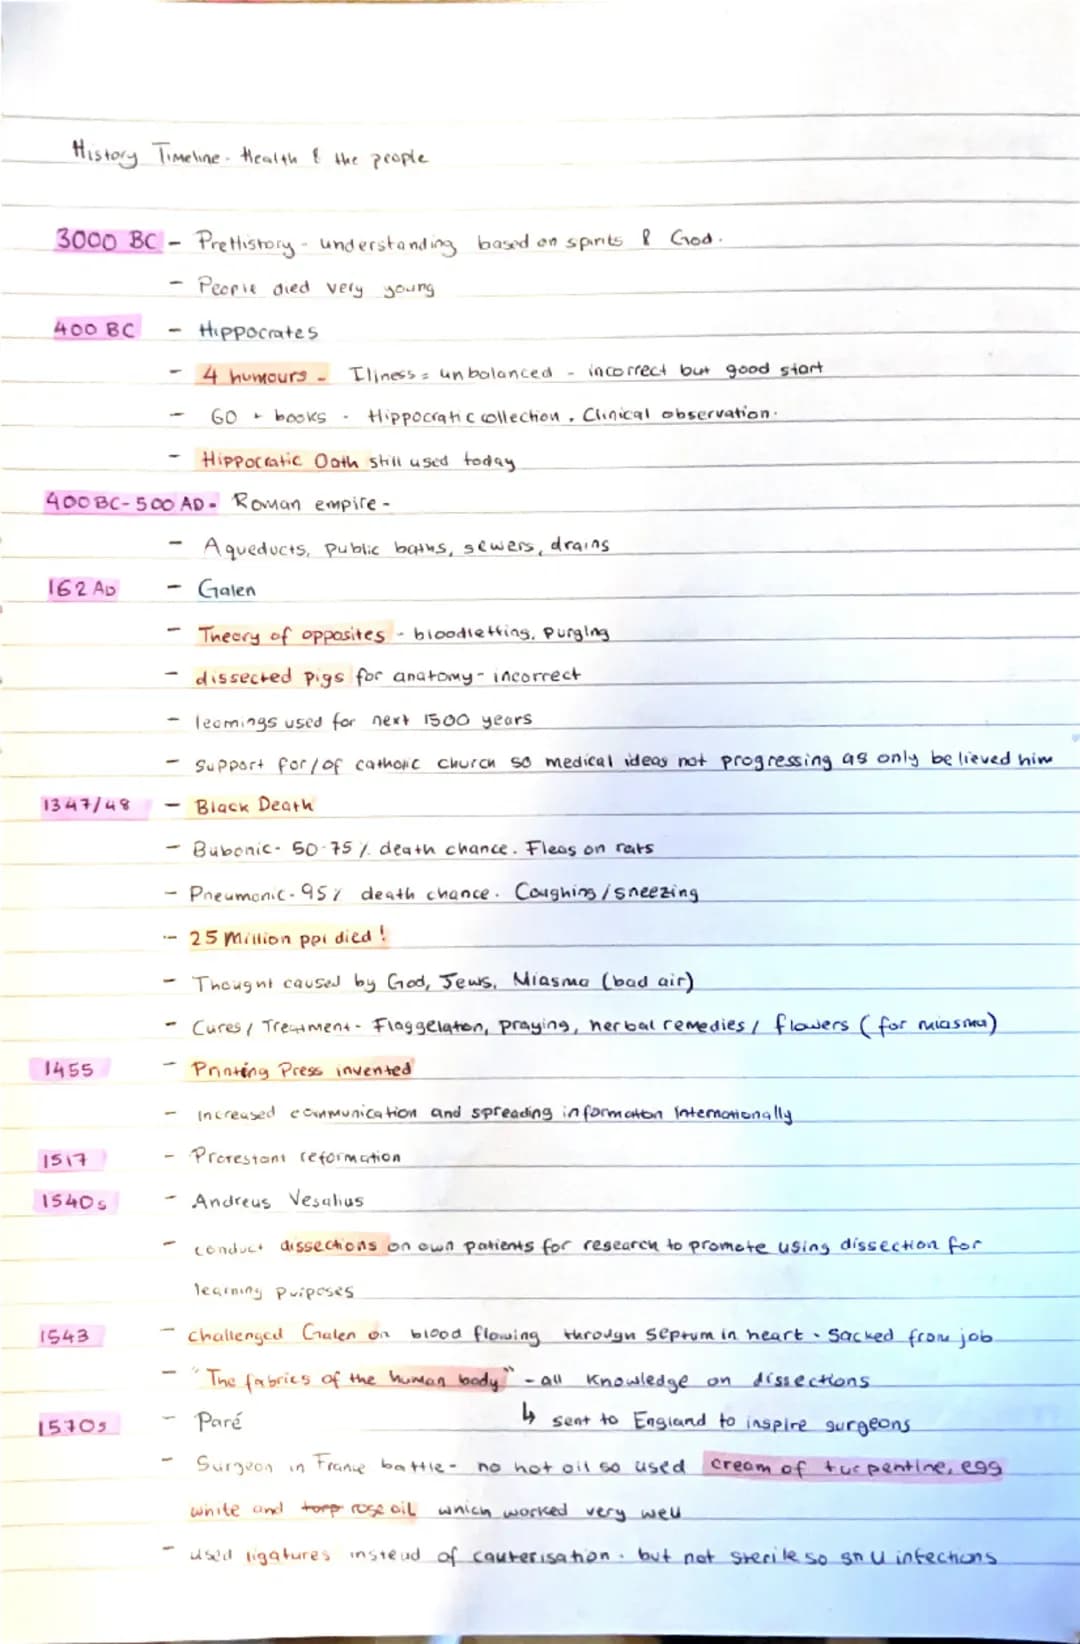 History Timeline - Health & the people
3000 BC - PreHistory - understanding based on spirits & God.
- People died very young
400 BC - Hippocrates
- 4 humours - Illness = unbalanced - incorrect but good start
- 60 + books - Hippocratic collection. Clinical observation.
- Hippocratic Oath still used today
400 BC - 500 AD - Roman empire -
- Aqueducts, public baths, sewers, drains
162 AD - Galen
- Theory of opposites - bloodletting, purging
- dissected pigs for anatomy - incorrect
- learnings used for next 1500 years
- Support for/of catholic church so medical ideas not progressing as only believed him
1347/48 - Black Death
- Bubonic - 50-75% death chance. Fleas on rats
- Pneumonic - 95% death chance. Coughing/sneezing
- 25 Million ppl died!
- Thought caused by God, Jews, Miasma (bad air)
- Cures / Treatment - Flaggelaton, praying, herbal remedies / flowers (for miasma)
1455 - Printing Press invented
- increased communication and spreading informaton internationally
1517 - Protestant reformation
1540s - Andreus Vesalius
- conduct dissections on own patients for research to promote using dissection for
learning purposes
1543 - challenged Galen on blood flowing through septum in heart. Sacked from job
- "The fabrics of the human body" - all knowledge on dissections
↳ sent to England to inspire surgeons
1570s - Paré
- Surgeon in France battle - no hot oil so used cream of turpentine, egg
white and rose oil which worked very well
- used ligatures instead of cauterisation. but not sterile so infections